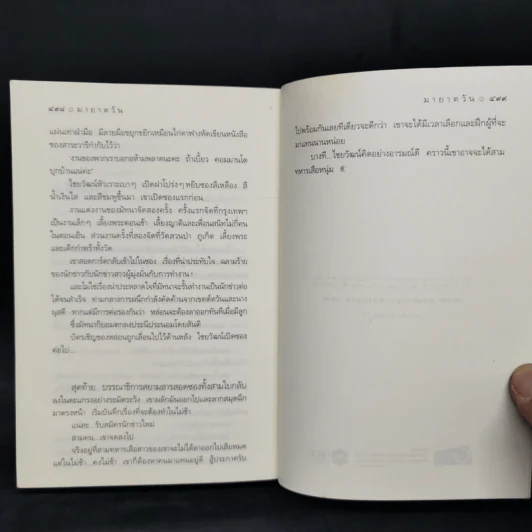 ๔๙๘ ○ มายาตวัน
แผ่นเท่าฝ่ามือ มีลายมือขยุกขยิกเหมือนไก่ตาฟางหัดเขียนหนังสือ
ของสาระวารีกำกับไว้ว่า
'งานของพวกเราบอกอห้ามพลาดนะคะ ถ้าเบี้ยว คอมมานโด
บุกบ้านแน่ค่ะ'
ไชยวัฒน์หัวเราะเบาๆ เปิดฝาโปร่งๆ หยิบซองสีเหลือง สี
น้ำเงินใส และสีชมพูขึ้นมา เขาเปิดซองแรกก่อน...
งานแต่งงานของมัทนาจัดสองครั้ง ครั้งแรกจัดที่กรุงเทพฯ
เป็นงานเล็กๆ เลี้ยงพระตอนเช้า เลี้ยงญาติและเพื่อนสนิทไม่กี่คน
ในตอนเย็น ส่วนงานครั้งที่สองจัดที่วัดสวนป่า ภูเก็ต เลี้ยงพระ
และเด็กกำพร้าทั้งวัด
เขาสอดการ์ดกลับเข้าไปในซอง เรื่องที่น่าประทับใจ...ฉลามร้าย
ของนักข่าวกับนักข่าวสาวผู้มุ่งมั่นกับการทำงาน!
และไม่ใช่เรื่องน่าประหลาดใจที่มัทนาจะรั้นทำงานเป็นนักข่าวต่อ
ได้จนสำเร็จ ท่ามกลางการผนึกกำลังคัดค้านจากเขตต์ตวันและนาง
มุสตี หากแต่มีการต่อรองกันว่า หล่อนจะต้องลาออกทันทีเมื่อมีลูก
ซึ่งมัทนาก็ยอมตกลงประนีประนอมโดยสันติ
บัตรเชิญของหล่อนถูกเลื่อนไปไว้ด้านหลัง ไชยวัฒน์เปิดซอง
ต่อไป...
สุดท้าย บรรณาธิการสยามสารสอดซองทั้งสามใบกลับ
ลงในตะแกรงอย่างระมัดระวัง เขาผลักมันออกไปและลากสมุดฉีก
มาตรงหน้า เริ่มบันทึกเรื่องที่จะต้องทำในไม่ช้า
แน่ละ...รับสมัครนักข่าวใหม่
สามคน...เขาจดลงไป
จริงอยู่ที่สามทหารเสือสาวของเขาจะไม่ได้ลาออกไปเสียหมด
แต่ในไม่ช้า...คงไม่ช้า เขาก็ต้องหาคนมาแทนอยู่ดี สู้ประกาศรับ
มายาตวัน ○ ๔๙๙
ไปพร้อมกันเลยทีเดียวจะดีกว่า เขาจะได้มีเวลาเลือกและฝึกผู้ที่จะ
มาแทนนานหน่อย
บางที...ไชยวัฒน์คิดอย่างอารมณ์ดี คราวนี้เขาอาจจะได้สาม
ทหารเสือหนุ่ม